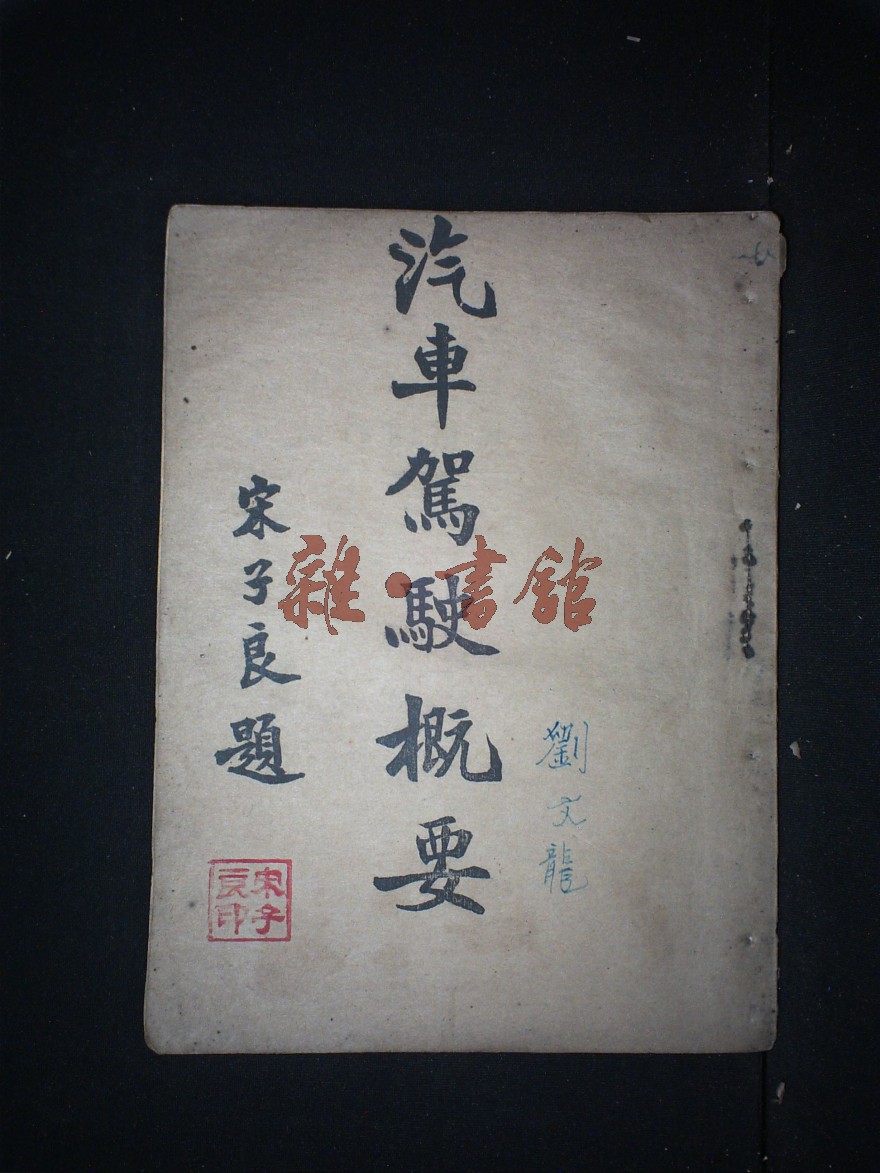 劉文龍
汽車駕駛概要
宋子良題
宋子
良印
雜·書館